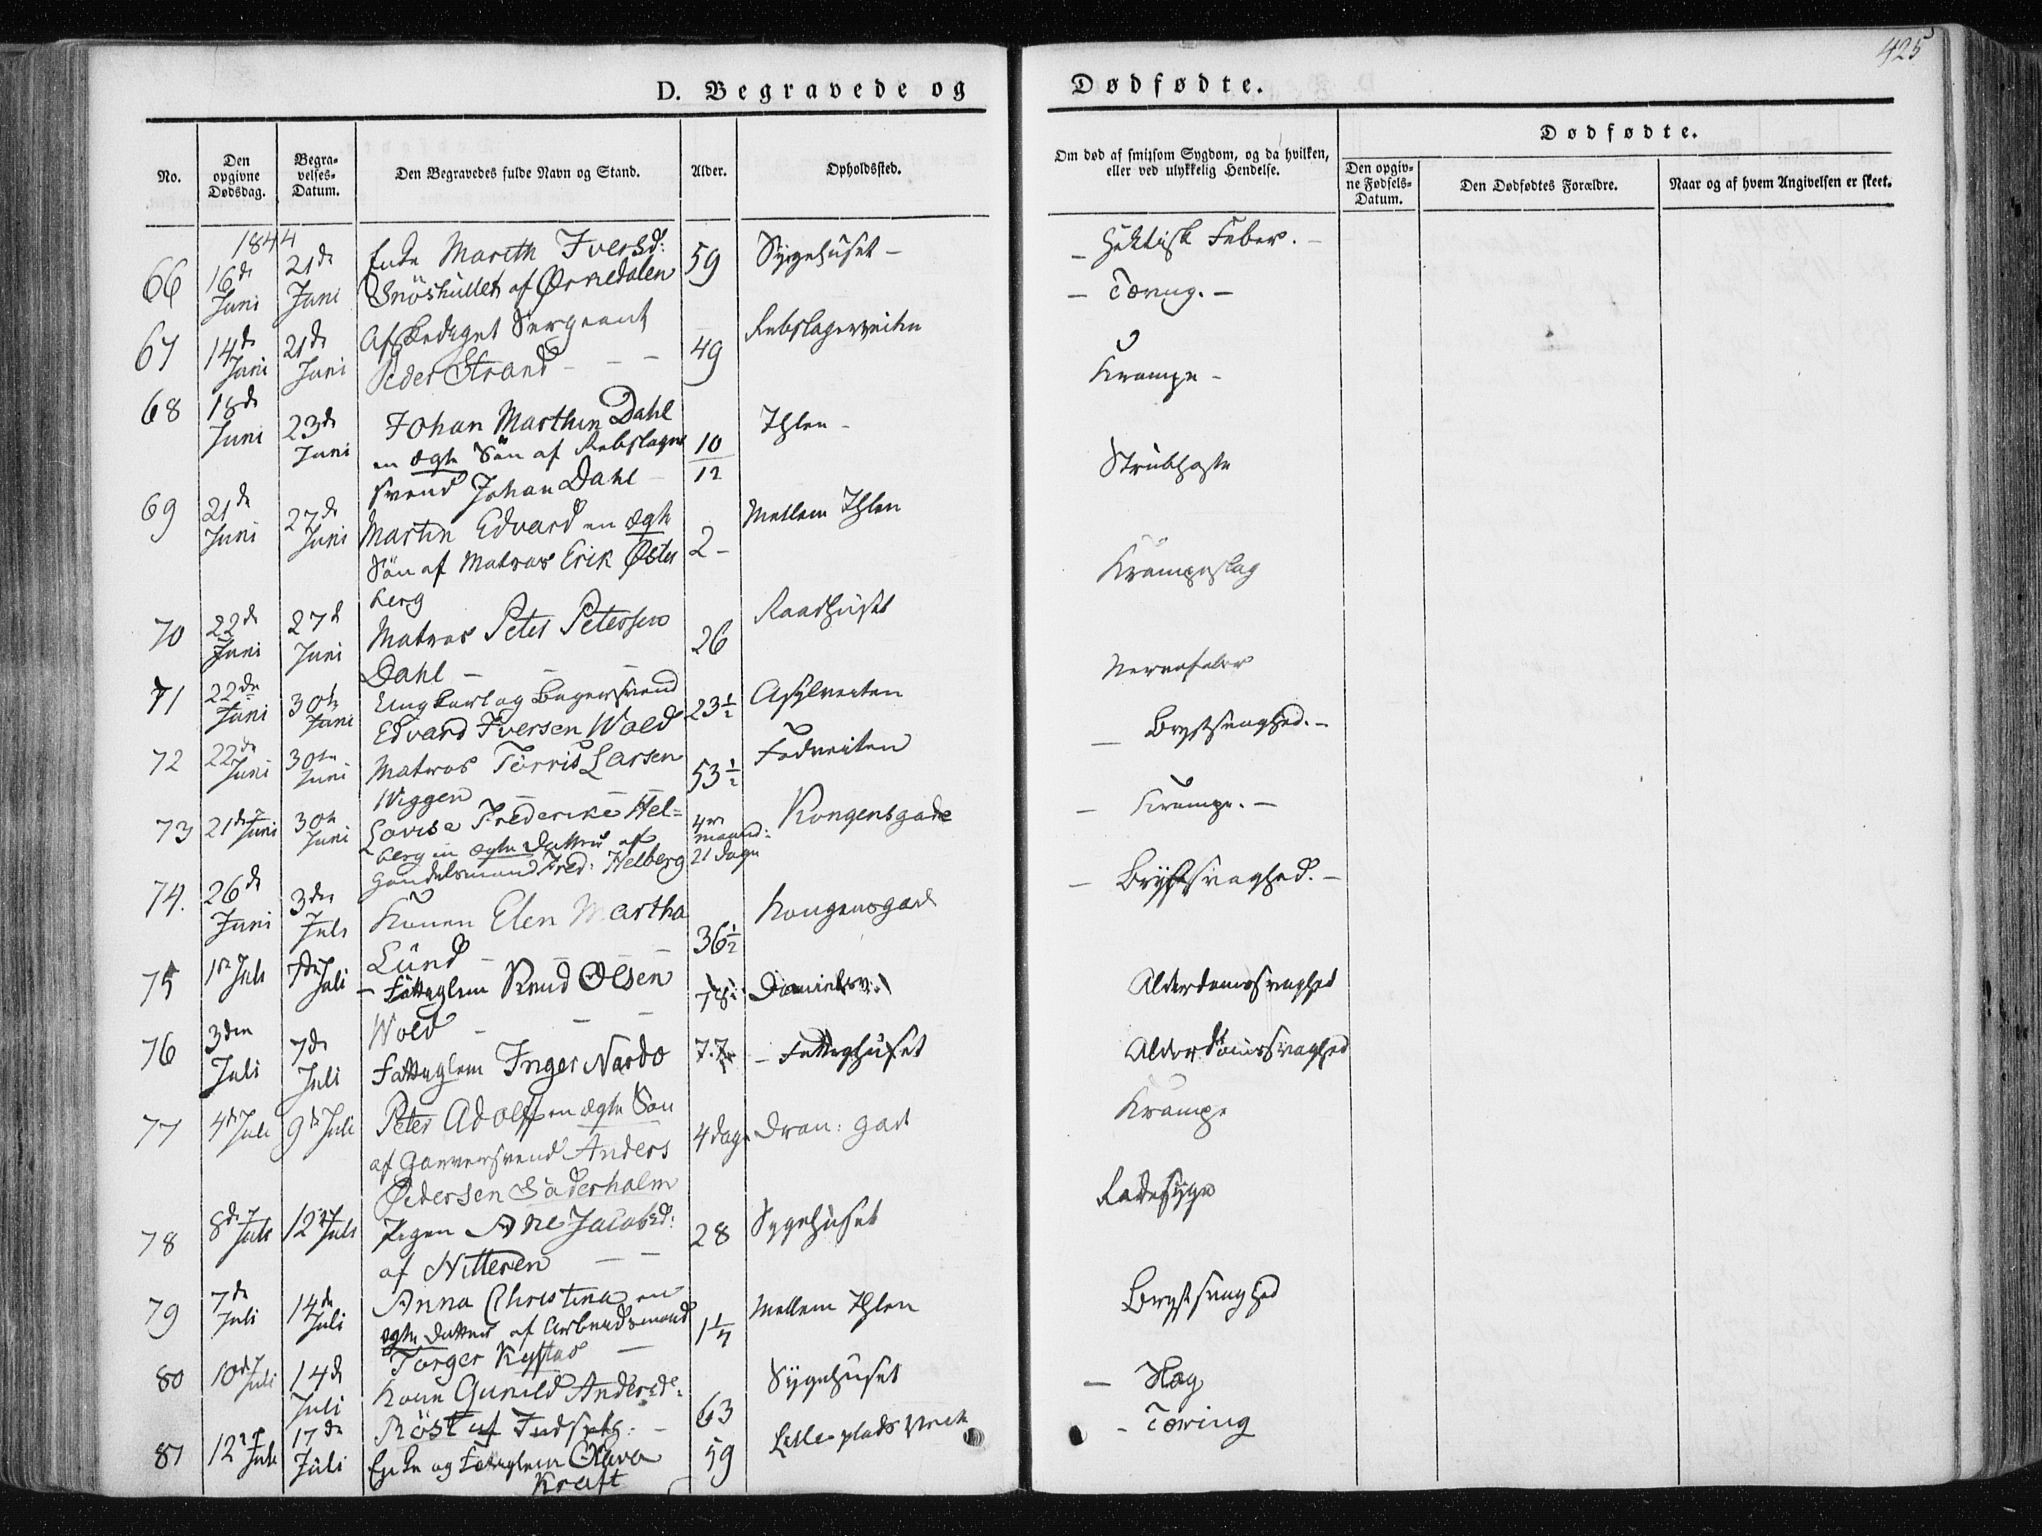 425
D. Begravede og Dødfødte.
No.
Den opgivne Dødsdag.
Begravelses-Datum.
Den Begravedes fulde Navn og Stand.
Alder.
Opholdssted.
Om død af smitsom Sygdom, og da hvilken,
eller ved ulykkelig Hendelse.
Dødfødte.
Den opgivne Fødsels-Datum.
Den Dødfødtes Forældre.
Naar og af hvem Angivelsen er skeet.
1844
66 16de Juni 21de Juni Enke Marith Iversd: 59 Sygehuset - - Hektisk Feber. -
Snöshullet af Ørkedalen - Tæring. -
67 14de Juni 21de Juni Afskediget Sergeant 49 Rebslagerveiten
Peder Strand - - - Krampe -
68 18de Juni 23de Juni Johan Marthin Dahl 10/12 Ihlen -
en ægte Sön af Rebslager
svend Johan Dahl - Strubhoste
69 21de Juni 27de Juni Martin Edvard en ægte 2 - Mellem Ihlen
Sön af Matros Erik Øster
berg Krampeslag
70 22de Juni 27de Juni Matros Peter Petersen 26 Raadhuset
Dahl - - Nervefeber
71 22de Juni 30te Juni Ungkarl og Bagersvend 23½ Asylveiten
Edvard Iversen Wold - Brystsvaghed. -
72 22de Juni 30te Juni Matros Törris Larsen 53½ Fedveiten
Wiggen - - - - Krampe. -
73 21de Juni 30te Juni Lovise Frederike Hel= 4re maaned: 21 dage Kongensgade
berg en ægte Datter af
Handelsmand Fred: Helberg - Brystsvaghed. -
74. 26de Juni 3die Juli Konen Elen Martha 36½ Kongensgade
Lünd - - -
75 1ste Juli 7de Juli - Fattiglem Knud Olsen 78½ Danielsv: Alderdomssvaghed
Wold - - -
76 3die Juli 7de Juli Fattiglem Inger Nardo 77 - Fattighuset Alderdomssvaghed
77 4de Juli 9de Juli Peter Adolf en ægte Sön 4 dage Dron: Gade Krampe
af Garversvend Anders
Pedersen Söderholm
78 8de Juli 12te Juli Pigen Ane Jacobsd: 28 Sygehuset Radesyge
af Hitteren - -
79 7de Juli 14de Juli Anna Christina en Mellem Ihlen Brystsvaghed
ægte Datter af Arbeidsmand
Torger -
80 10de Juli 14de Juli Kone Gunild Andersd: 63 Sygehuset - Slag
Röst af -
81 12te Juli 17de Juli Enke og Fattiglem Olava 59 Lille plads - Tæring
Kraft